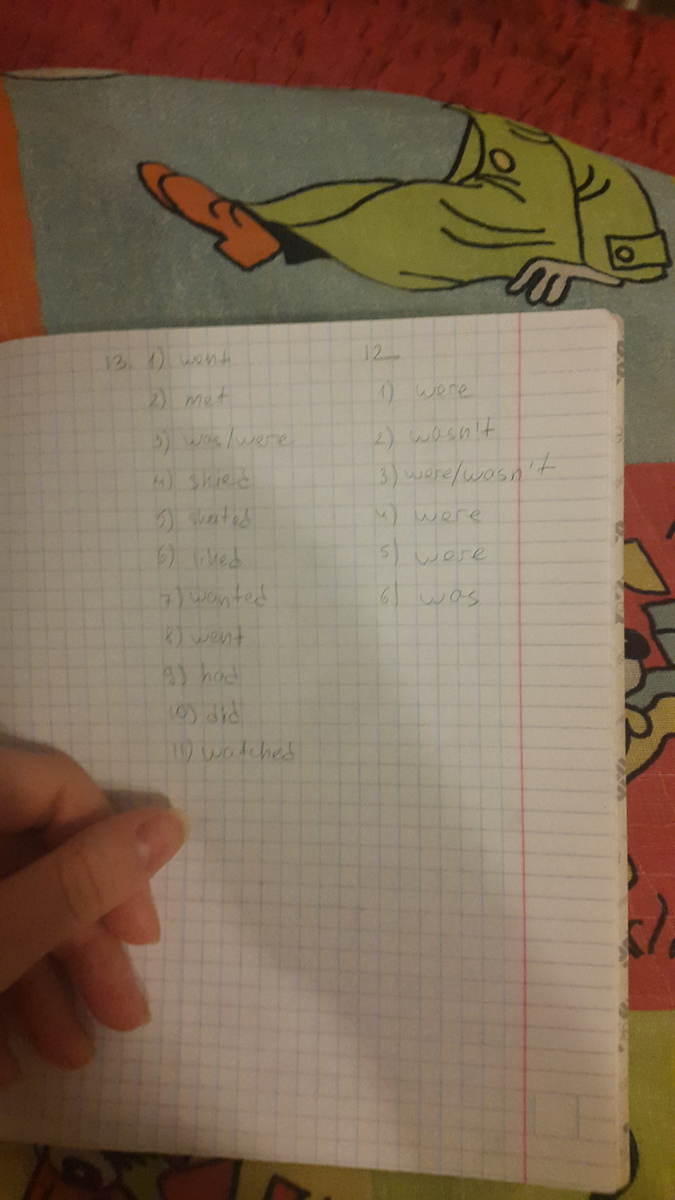 13. 1) went
2) met
3) was/were
4) skied
5) skated
6) liked
7) wanted
8) went
9) had
10) did
11) watched
12
1) were
2) wasn't
3) were/wasn't
4) were
5) were
6) was